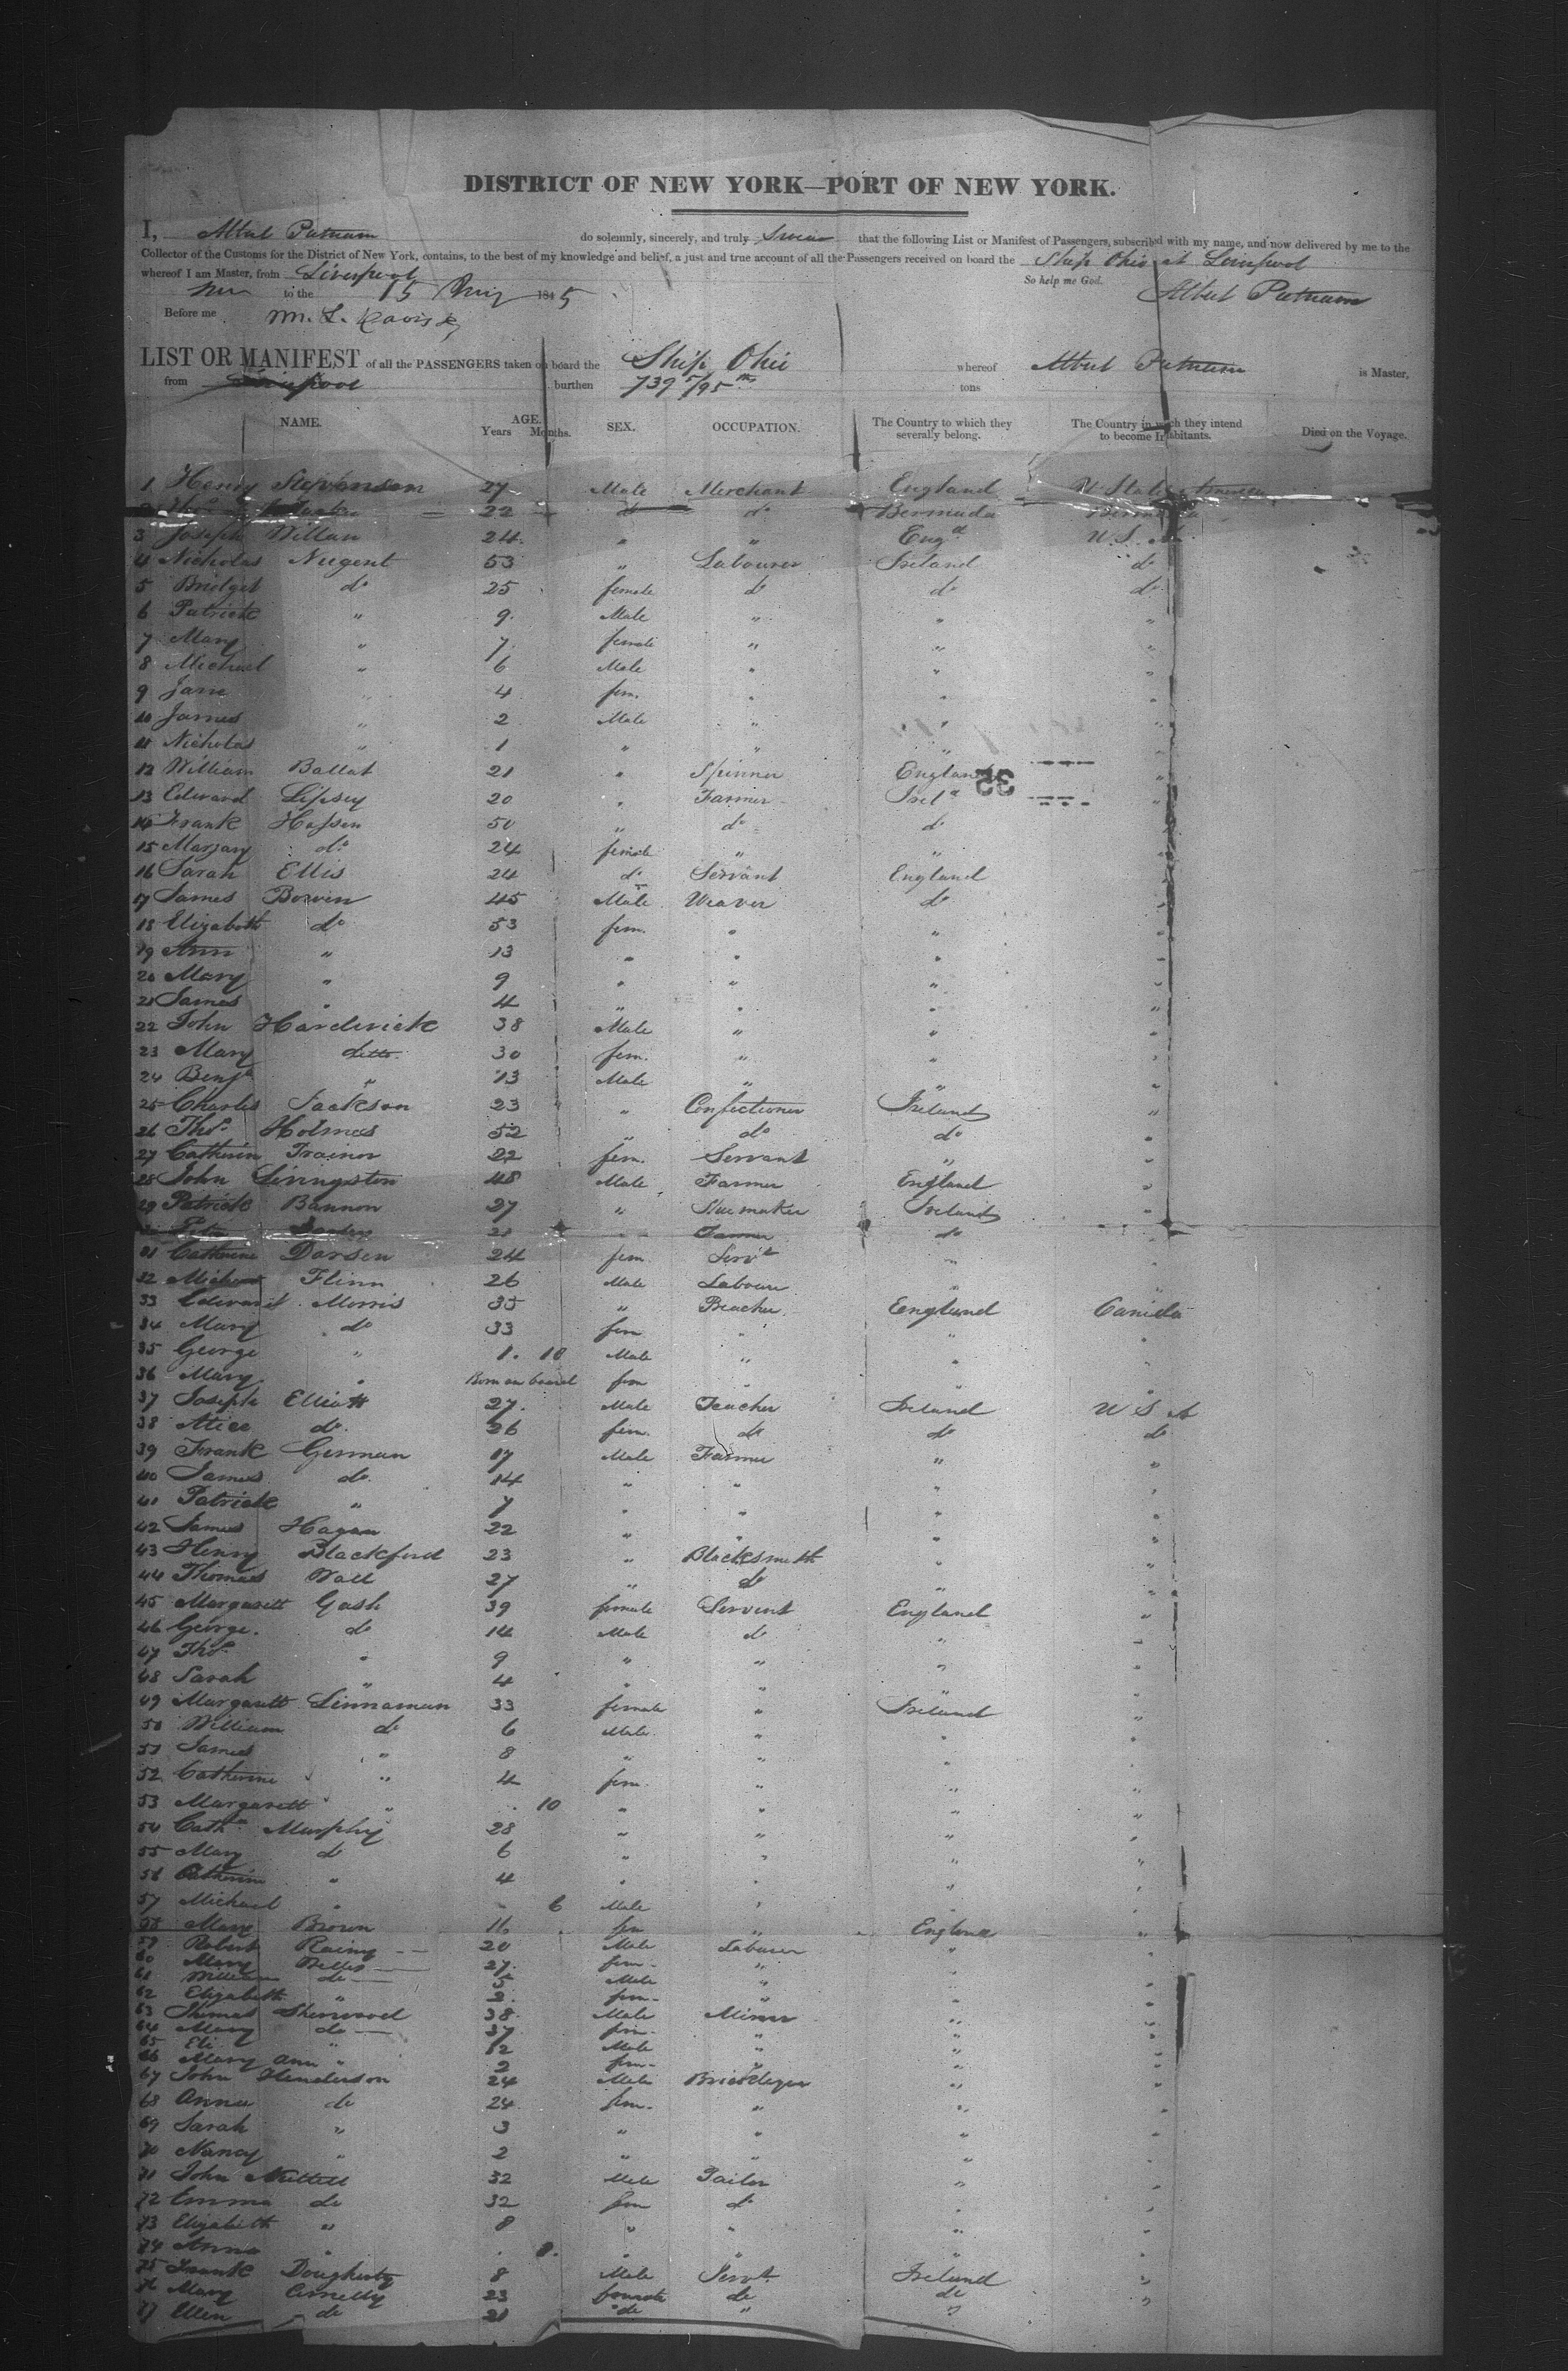 DISTRICT OF NEW YORK—PORT OF NEW YORK.
I, Albert Putnam do solemnly, sincerely, and truly Swear that the following List or Manifest of Passengers, subscribed with my name, and now delivered by me to the
Collector of the Customs for the District of New York, contains, to the best of my knowledge and belief, a just and true account of all the Passengers received on board the Ship Ohio at Liverpool
whereof I am Master, from Liverpool
So help me God.
to the 15 1845 Albert Putnam
Before me
LIST OR MANIFEST of all the PASSENGERS taken on board the Ship Ohio whereof Albert Putnam is Master,
from Liverpool burthen 739 7/95ths tons
NAME. AGE. Years Months. SEX. OCCUPATION. The Country to which they severally belong. The Country in which they intend to become Inhabitants. Died on the Voyage.
1 Henry Stevenson 27 Male Merchant England U States America
22 do do Bermuda
3 Joseph Willan 24 " " Engd U.S.
4 Nicholas Nugent 53 " Labourer Ireland do
5 Bridget do 25 female do do do
6 Patrick " 9 Male " " "
7 Mary " 7 female " " "
8 Michael " 6 Male " " "
9 Jane " 4 fem. " " "
10 James " 2 Male " " "
11 Nicholas " 1 " " " "
12 William Ballat 21 " Spinner England "
32
13 Edward Lipsey 20 " Farmer Ireld "
14 Frank Hassen 50 " do do "
15 Marjary do 24 female " " "
16 Sarah Ellis 24 do Servant England "
17 James Bowen 45 Male Weaver do "
18 Elizabeth do 53 fem. " " "
19 Ann " 13 " " " "
20 Mary " 9 " " " "
21 James " 4 " " " "
22 John Harderick 38 Male " " "
23 Mary ditto 30 fem. " " "
24 Benjn " 13 Male " " "
25 Charles Jackson 23 " Confectioner Ireland "
26 Thos. Holmes 52 " do do "
27 Catherin Trainor 22 fem. Servant " "
28 John Livingston 48 Male Farmer England "
29 Patrick Bannon 27 " Shuemaker Ireland "
21 " Farmer do "
31 Catherine Dorsen 24 fem. Servt " "
32 Michael Flinn 26 Male Labourer " "
33 Edward Morris 35 " England Canida
34 Mary do 33 fem " " "
35 George " 1. 10 Male " " "
36 Mary " Born on board fem " " "
37 Joseph Elliott 27. Male Teacher Ireland U S A
38 Alice do. 26 fem. do do do
39 Frank German 17 Male Farmer " "
40 James do. 14 " " " "
41 Patrick " 7 " " " "
42 James Hagan 22 " " " "
43 Henry Blackford 23 " Blacksmith " "
44 Thomas Wall 27 " do " "
45 Margarett Gash 39 female Servent England "
46 George. do 14 Male do " "
47 Thos. " 9 " " " "
48 Sarah " 4 " " " "
49 Margarett Linnaman 33 female " Ireland "
50 William do 6 Male " " "
51 James " 8 " " " "
52 Catherine " 4 fem. " " "
53 Margarett " 10 " " " "
54 Cathn Murphy 28 " " " "
55 Mary do 6 " " " "
56 Catherine " 4 " " " "
57 Michael " 6 Male " " "
58 Mary Brown 16 fem " England "
59 Robert Rainy 20 Male Labourer " "
60 Mary 27. fem. " " "
61 William do 5 Male " " "
62 Elizabeth " 2. fem. " " "
63 Thomas Sherwood 38 Male Miner " "
64 Mary do 37 fem. " " "
65 Eli " 12 Male " " "
66 Mary Ann " 2 fem. " " "
67 John Henderson 24 Male " "
68 Anna do 24 fem. " " "
69 Sarah " 3 " " " "
70 Nancy " 2 " " " "
71 John Nuttell 32 Male Tailor " "
72 Emma do 32 fem do " "
73 Elizabeth " 8 " " " "
74 Anna " 8. " " " "
75 Frank Dougherty 8 Male Servt. Ireland "
76 Mary 23 female do do "
77 Ellen do 21 do " "